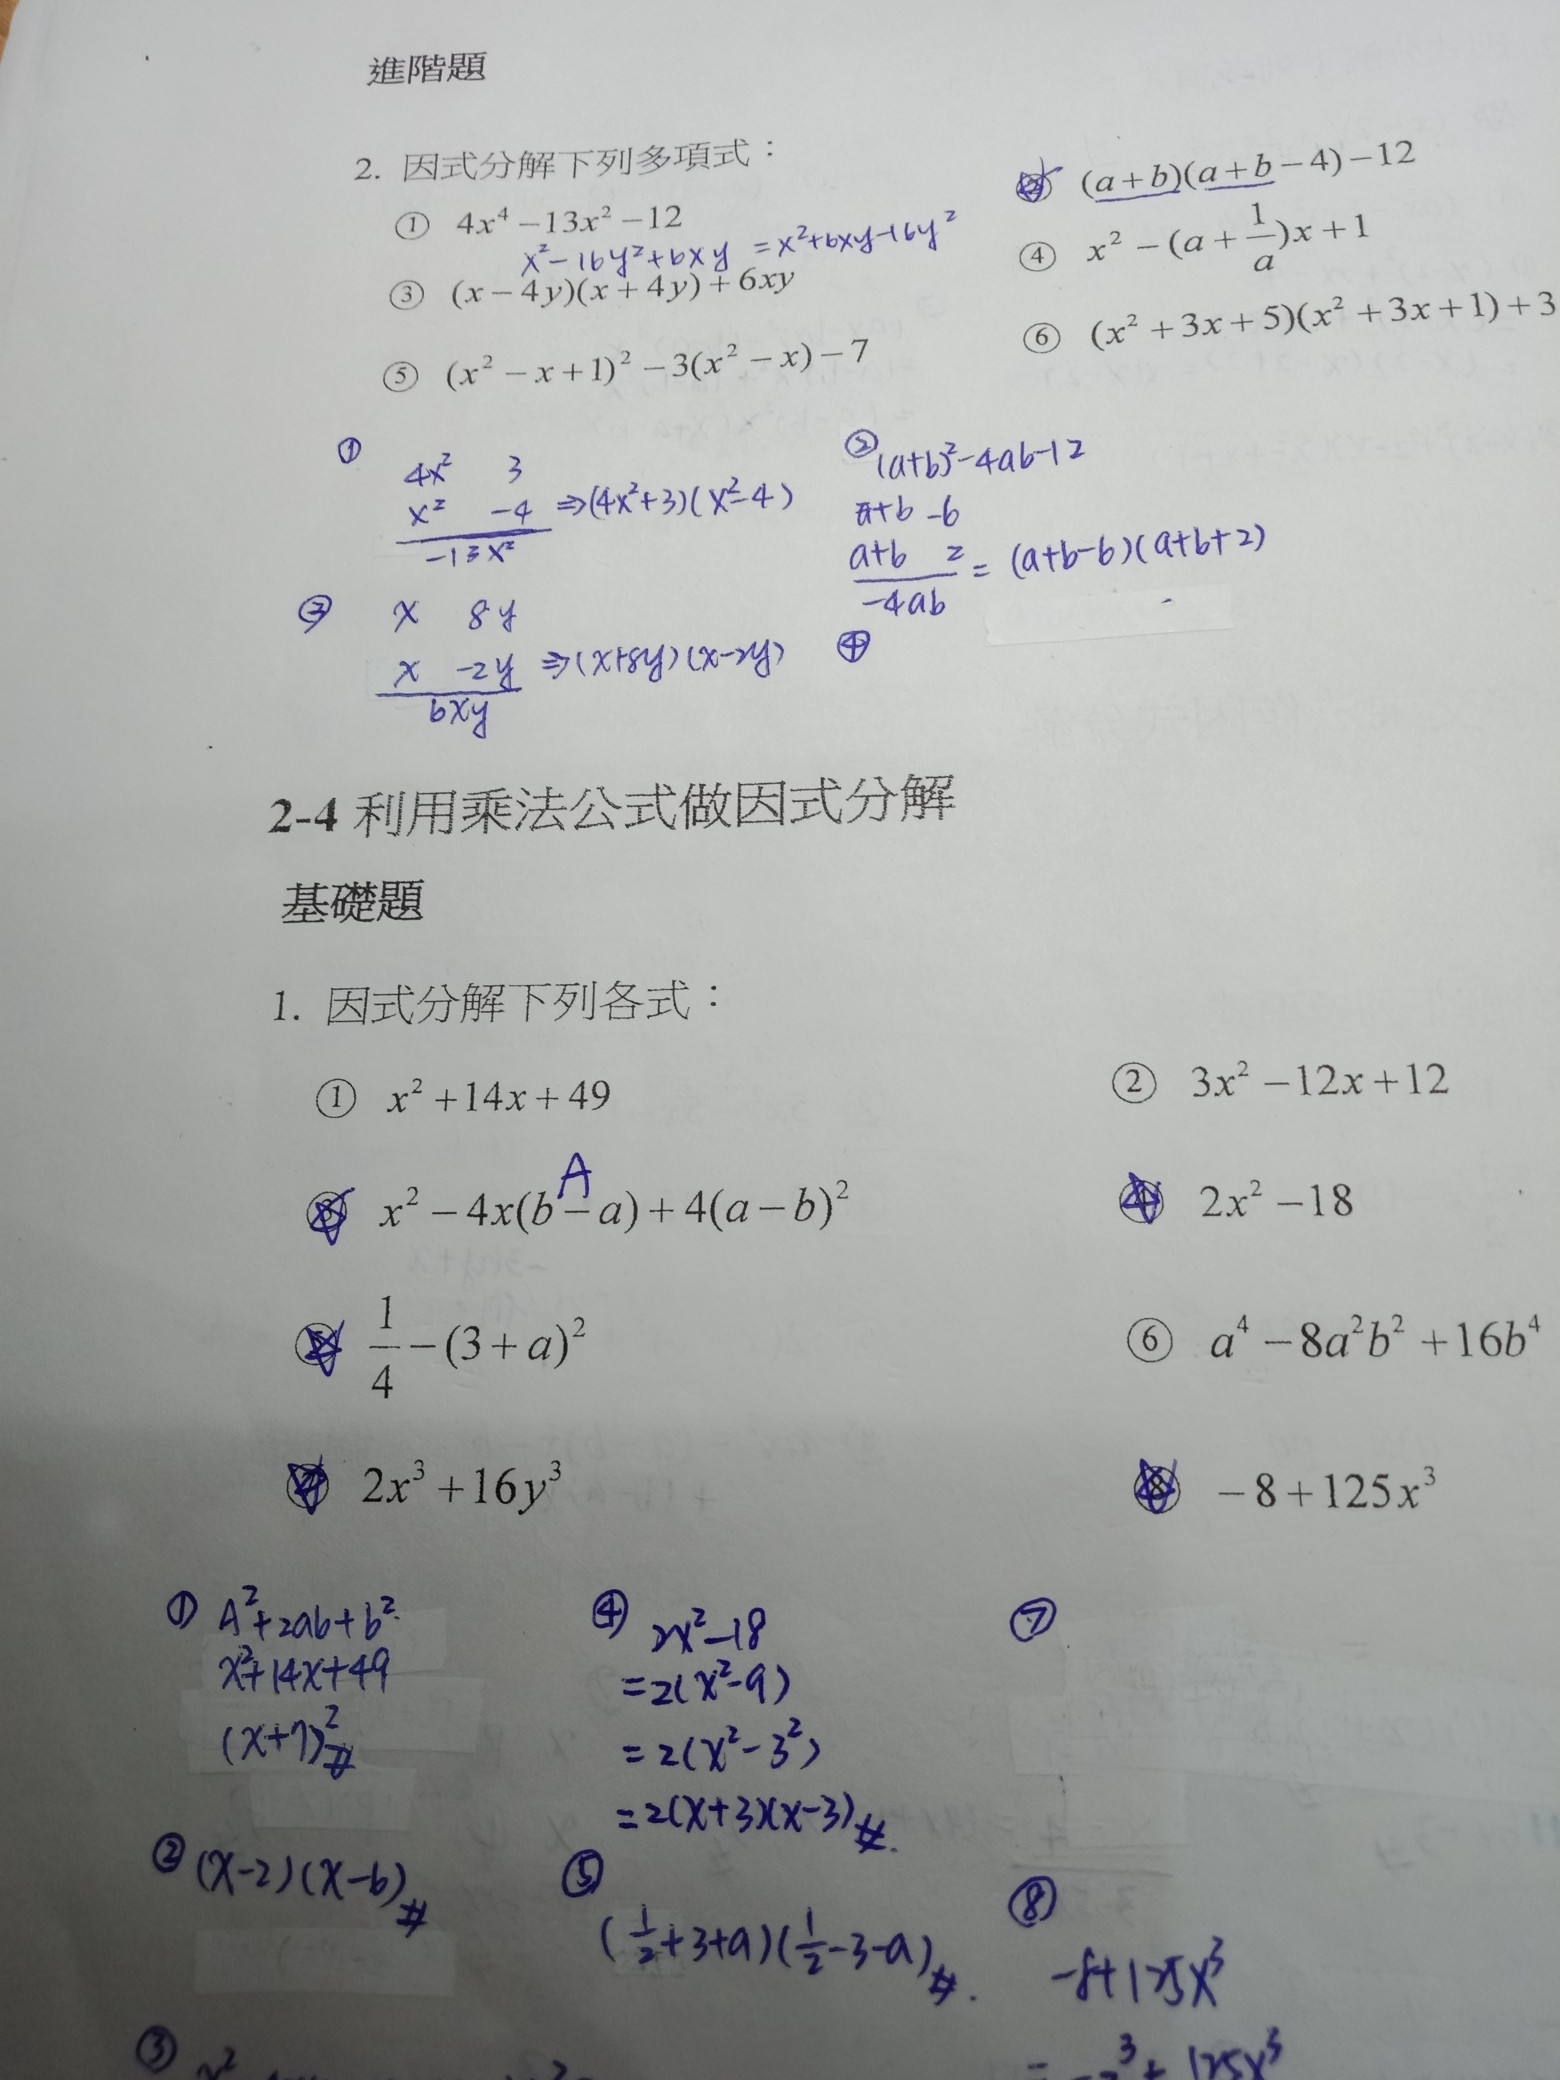 進階題
2. 因式分解下列多項式：
① 4x⁴ − 13x² − 12
② (a + b)(a + b − 4) − 12
x² − 16y² + 6xy = x² + 6xy − 16y²
③ (x − 4y)(x + 4y) + 6xy
④ x² − (a + 1/a)x + 1
⑤ (x² − x + 1)² − 3(x² − x) − 7
⑥ (x² + 3x + 5)(x² + 3x + 1) + 3
①
4x² 3
x² −4 ⇒ (4x²+3)(x²−4)
−13x²
② (a+b)²−4ab−12
a+b −6
a+b 2 = (a+b−6)(a+b+2)
−4ab
③ x 8y
x −2y ⇒ (x+8y)(x−2y)
6xy
④
2-4 利用乘法公式做因式分解
基礎題
1. 因式分解下列各式：
① x² + 14x + 49
② 3x² − 12x + 12
A
③ x² − 4x(b − a) + 4(a − b)²
④ 2x² − 18
⑤ 1/4 − (3 + a)²
⑥ a⁴ − 8a²b² + 16b⁴
⑦ 2x³ + 16y³
⑧ −8 + 125x³
① A²+2ab+b²
x²+14x+49
(x+7)²#
② (x−2)(x−6)#
③
④ 2x²−18
=2(x²−9)
=2(x²−3²)
=2(x+3)(x−3)#.
⑤
(1/2+3+a)(1/2−3−a)#.
⑦
⑧
−8+125x³